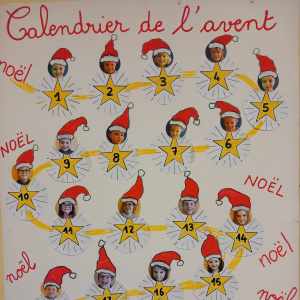 Calendrier de l'avent
noël
1 2 3 4 5
NOËL
10 9 8 7 6
NOËL
11 12 13 14
noël!
noël
17 16 15
noël